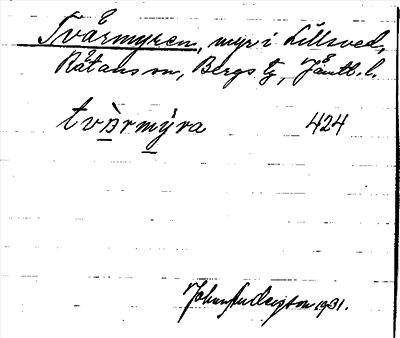 Tvärmyren, myr i Lillsved,
Rätans sn, Bergs tg, Jämtl. l.
tvärmýra 424
John Andersson 1931.